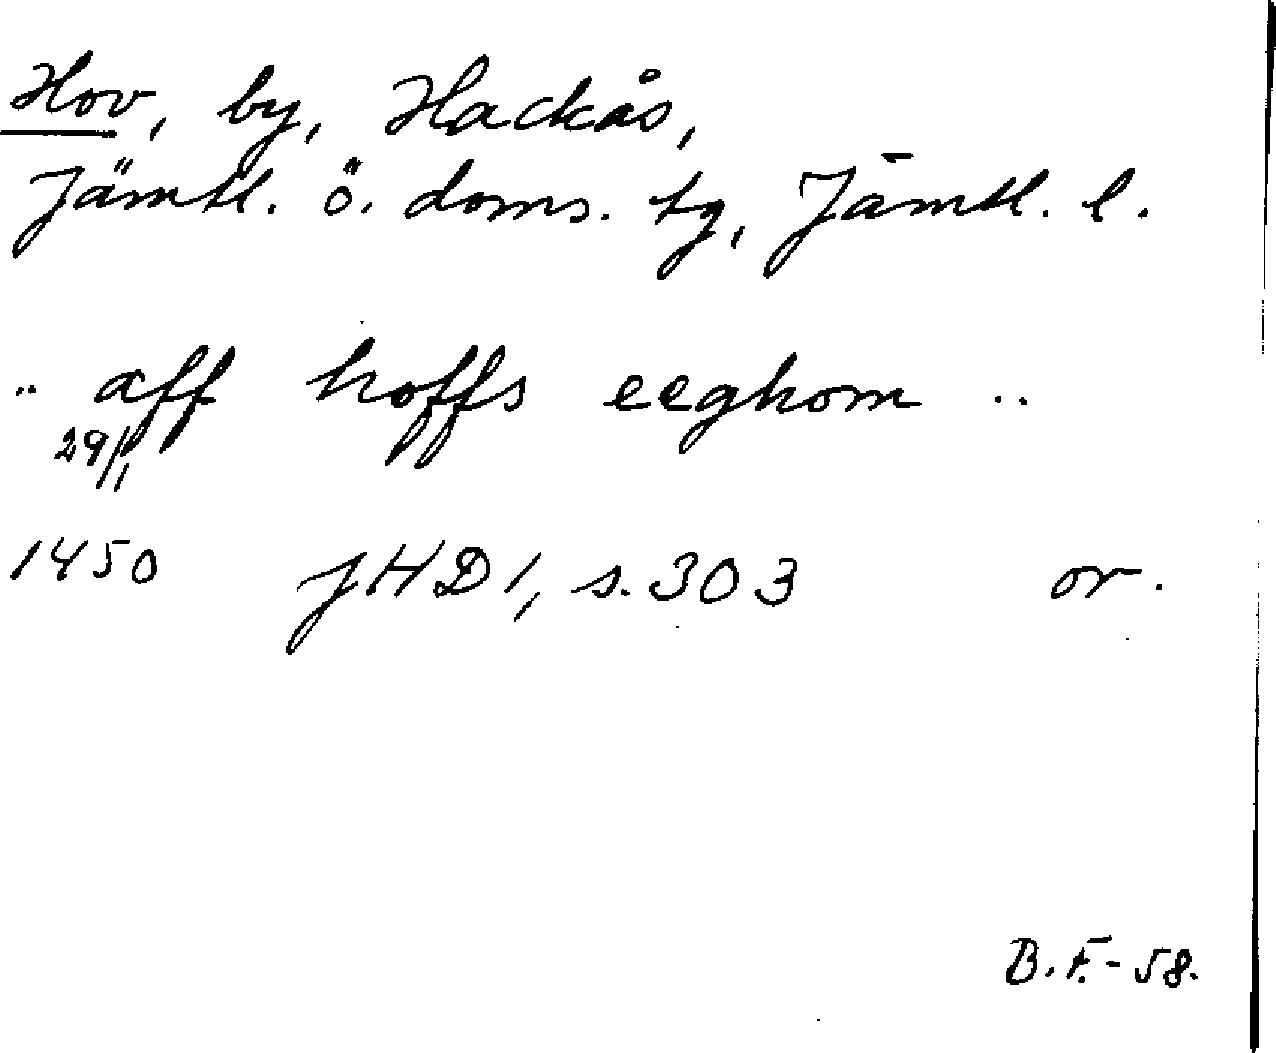 Hov, by, Hackås,
Jämtl. ö. doms. tg, Jämtl. l.
.. aff hoffs eeghom ..
29/1
1450 JHD 1, s. 303 or.
B.F.-58.